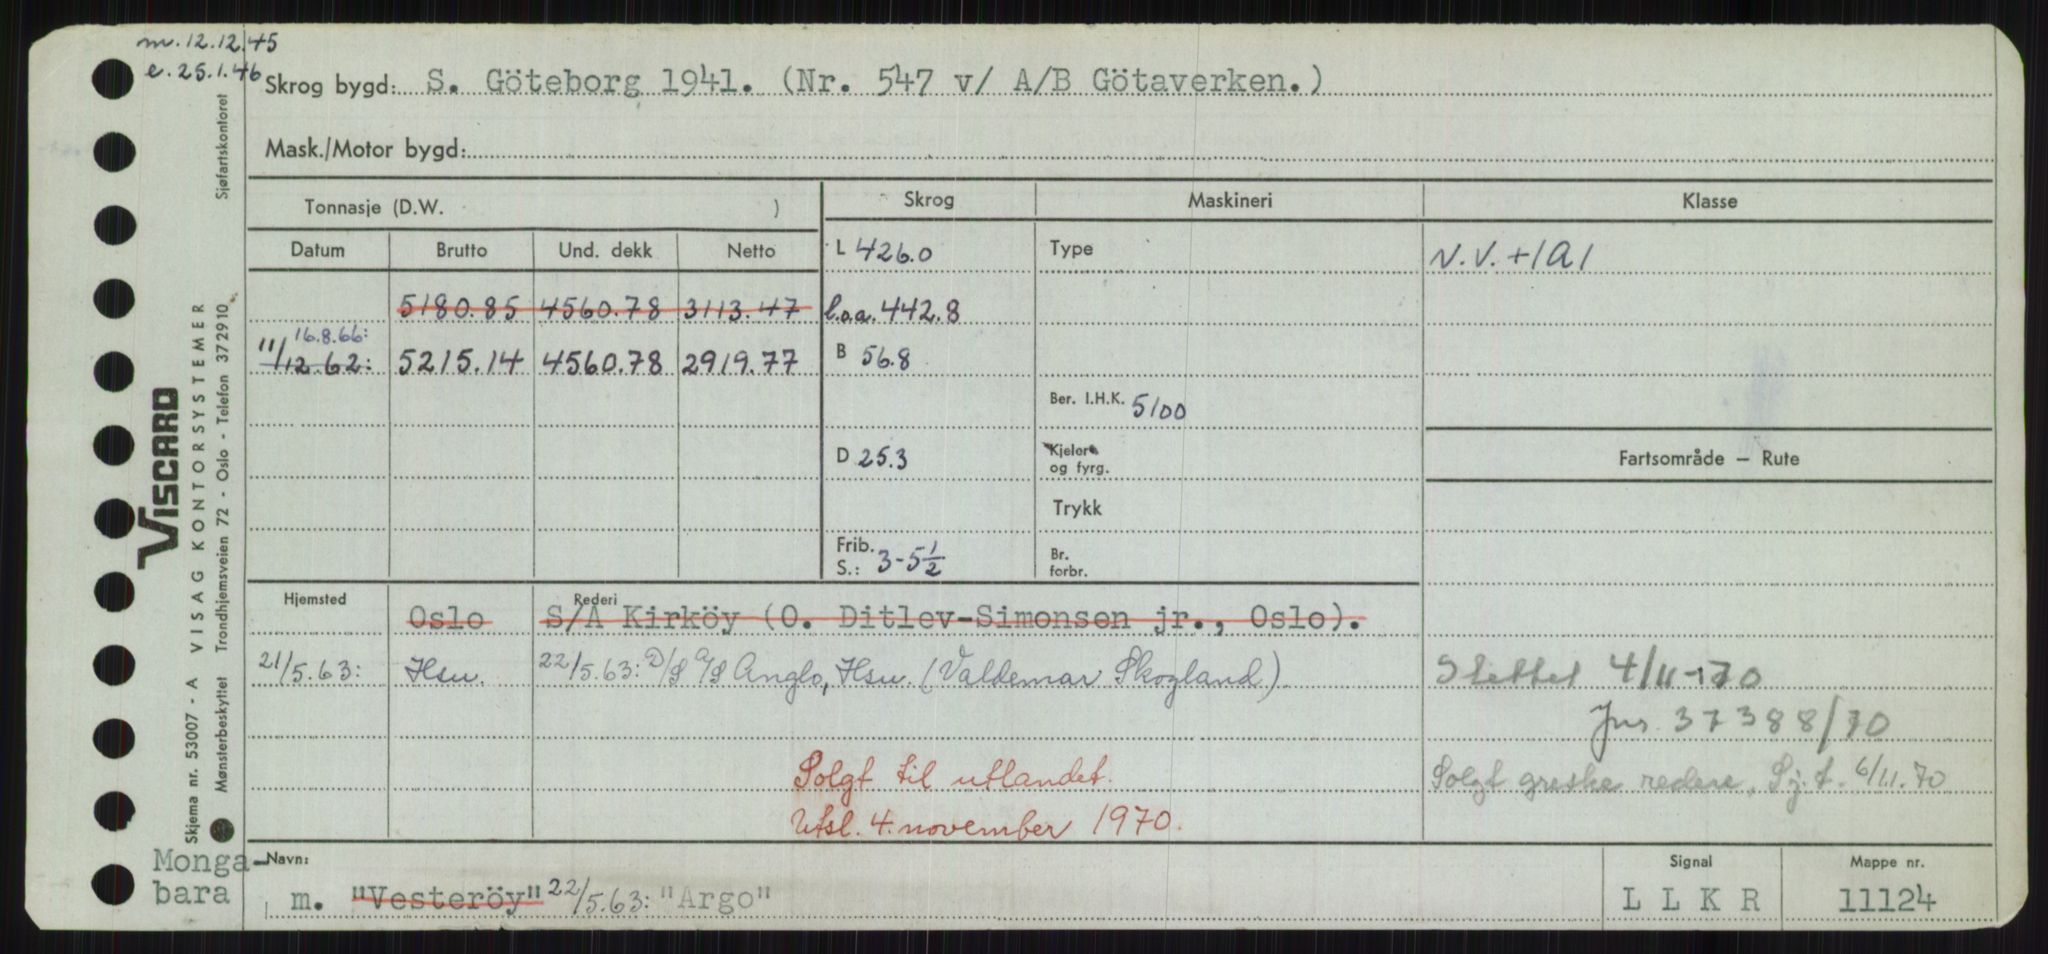 m. 12.12.45
e. 25.1.46
Skrog bygd: S. Göteborg 1941. (Nr. 547 v/ A/B Götaverken.)
Mask./Motor bygd:
Tonnasje (D.W. ) Skrog Maskineri Klasse
Datum Brutto Und. dekk Netto L 426.0 Type N.V. +1A1
5180.85 4560.78 3113.47 l.o.a. 442.8
16.8.66:
11/12.62: 5215.14 4560.78 2919.77 B 56.8
Ber. I.H.K. 5100
D 25.3 Kjeler og fyrg. Fartsområde – Rute
Trykk
Frib. S.: 3-5 1/2 Br. forbr.
Hjemsted Rederi
Oslo S/A Kirköy (O. Ditlev-Simonsen jr., Oslo).
21/5.63: Hsu. 22/5.63: D/S A/S Anglo, Hsu. (Valdemar Skogland) Slettet 4/11-70
Jnr. 37388/70
Solgt til utlandet. Solgt greske redere, Sj.t. 6/11.70
Utsl. 4. november 1970.
Monga-
bara
Navn: Signal Mappe nr.
m. "Vesteröy" 22/5.63: "Argo" LLKR 11124
VISCARD
VISAG KONTORSYSTEMER
Skjema nr. 53007 - A
Mønsterbeskyttet Trondhjemsveien 72 - Oslo - Telefon 372910
Sjøfartskontoret